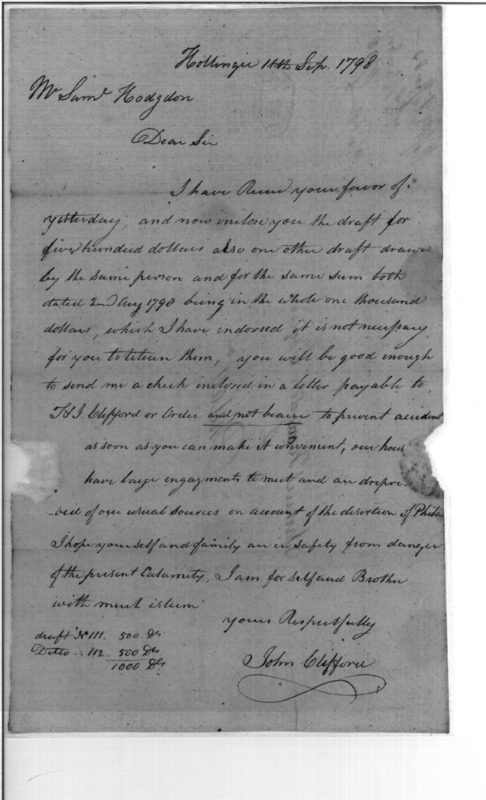 Hollingir 11th Sep. 1798
Mr Saml Hodgdon
Dear Sir
I have Recd your favor of
yesterday, and now inclose you the draft for
five hundred dollars also one other draft drawn
by the same person and for the same sum both
dated 2nd Aug 1798 being in the whole one thousand
dollars, which I have indorsed it is not necessary
for you to return them, you will be good enough
to send me a check inclosed in a letter payable to
T & J. Clifford or Order and not bearer to prevent accident
as soon as you can make it convenient, our house
have large engagments to meet and are depri
ved of our usual sources on account of the desertion of Phila
I hope yourself and family are in safety from danger
of the present Calamity, I am for self and Brother
with much esteem
yours Respectfully
John Clifford
draft No 111. 500 Ds
Ditto .. 112. 500 Ds
1000 Ds